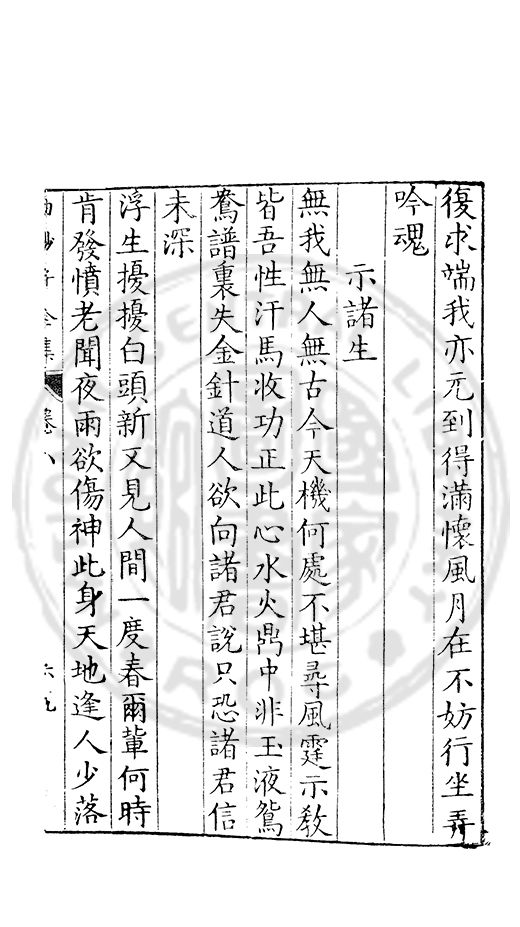 復求端我亦元到得滿懷風月在不妨行坐弄
吟魂
示諸生
無我無人無古今天機何處不堪尋風霆示敎
皆吾性汗馬收功正此心水火鼎中非玉液鴛
鴦譜裏失金針道人欲向諸君說只恐諸君信
未深
浮生擾擾白頭新又見人間一度春爾輩何時
肯發憤老聞夜雨欲傷神此身天地逢人少落
全集 卷八